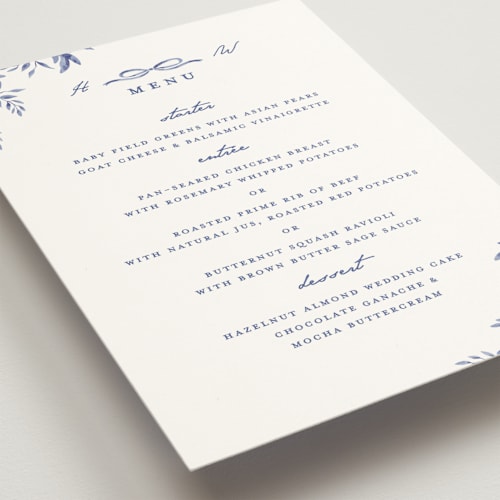 H W
MENU
starter
BABY FIELD GREENS WITH ASIAN PEARS
GOAT CHEESE & BALSAMIC VINAIGRETTE
entrée
PAN-SEARED CHICKEN BREAST
WITH ROSEMARY WHIPPED POTATOES
OR
ROASTED PRIME RIB OF BEEF
WITH NATURAL JUS, ROASTED RED POTATOES
OR
BUTTERNUT SQUASH RAVIOLI
WITH BROWN BUTTER SAGE SAUCE
dessert
HAZELNUT ALMOND WEDDING CAKE
CHOCOLATE GANACHE &
MOCHA BUTTERCREAM